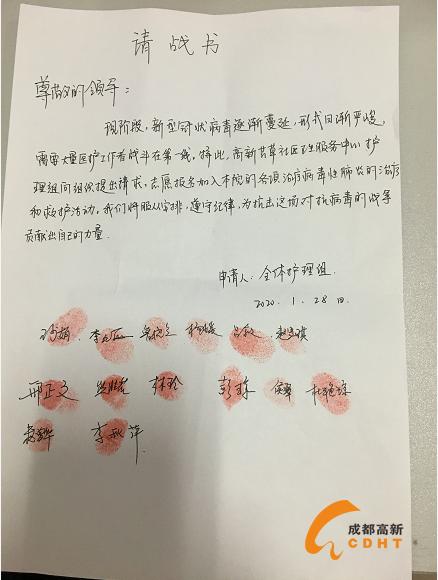 请战书
尊敬的领导：
现阶段，新型冠状病毒逐渐蔓延，形式日渐严峻，
需要大量医护工作者战斗在第一线。特此，高新芳草社区卫生服务中心护
理组向组织提出请求，志愿报名加入本院的各项治疗病毒性肺炎的治疗
和救护活动。我们将服从安排，遵守纪律，为抗击这场对抗病毒的战争
贡献出自己的力量。
申请人：全体护理组
2020.1.28日
邢正文 林玲 彭琼
李秋萍
成都高新
CDHT